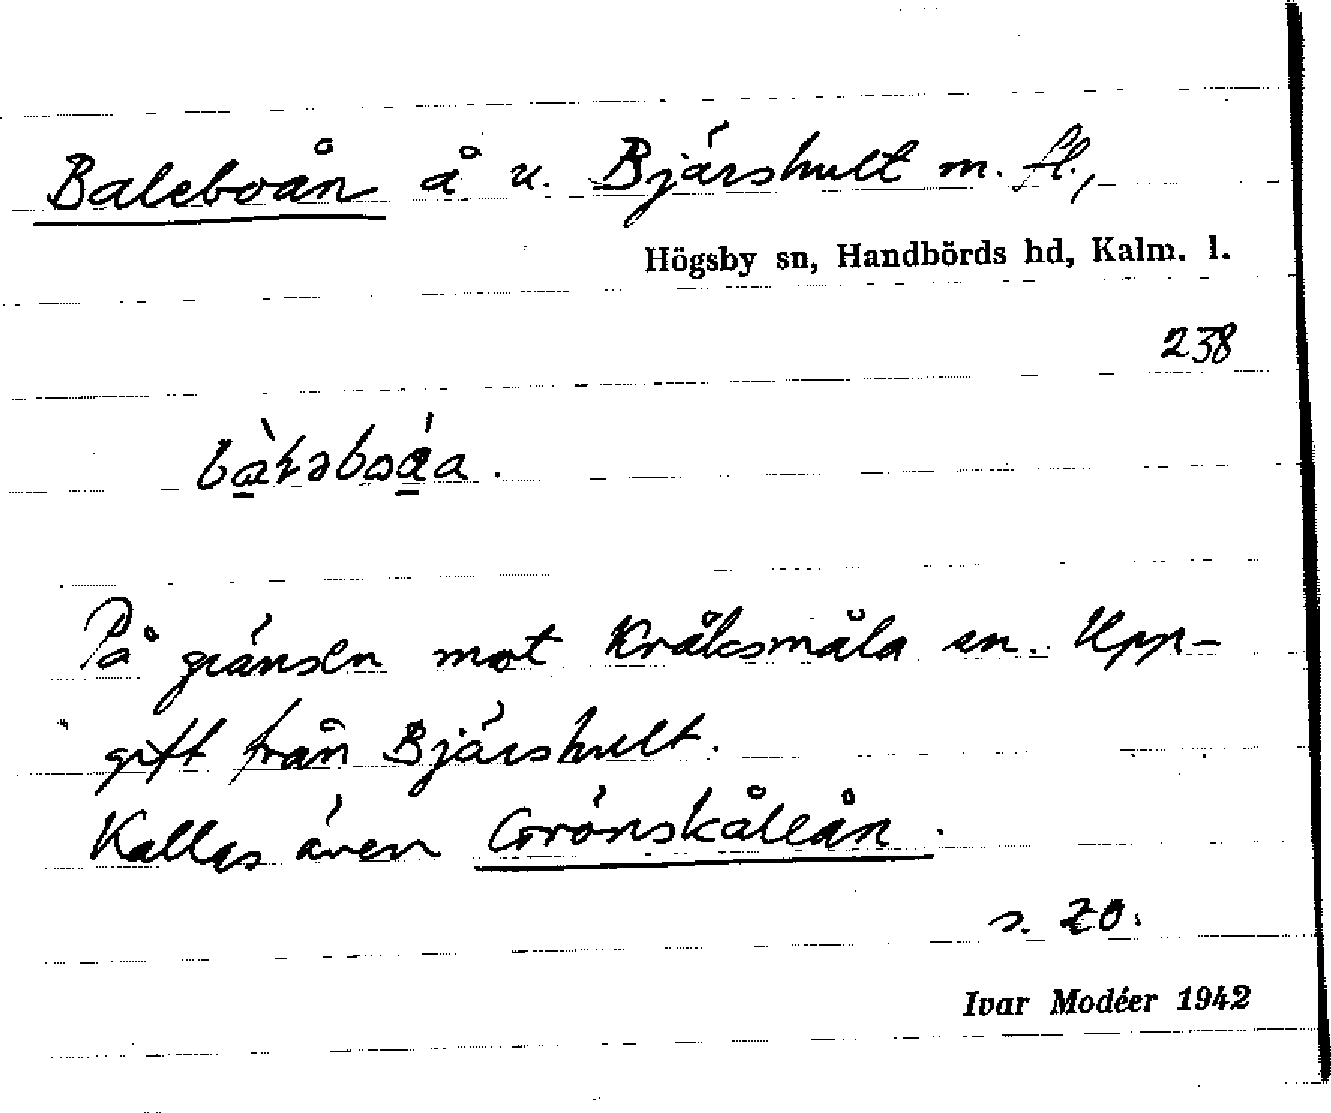 Baleboån å u. Bjärshult m. fl.,
Högsby sn, Handbörds hd, Kalm. l.
238
På gränsen mot Kråksmåla sn. Upp-
gift från Bjärshult.
Kallas även Grönskålån.
s. 20.
Ivar Modéer 1942